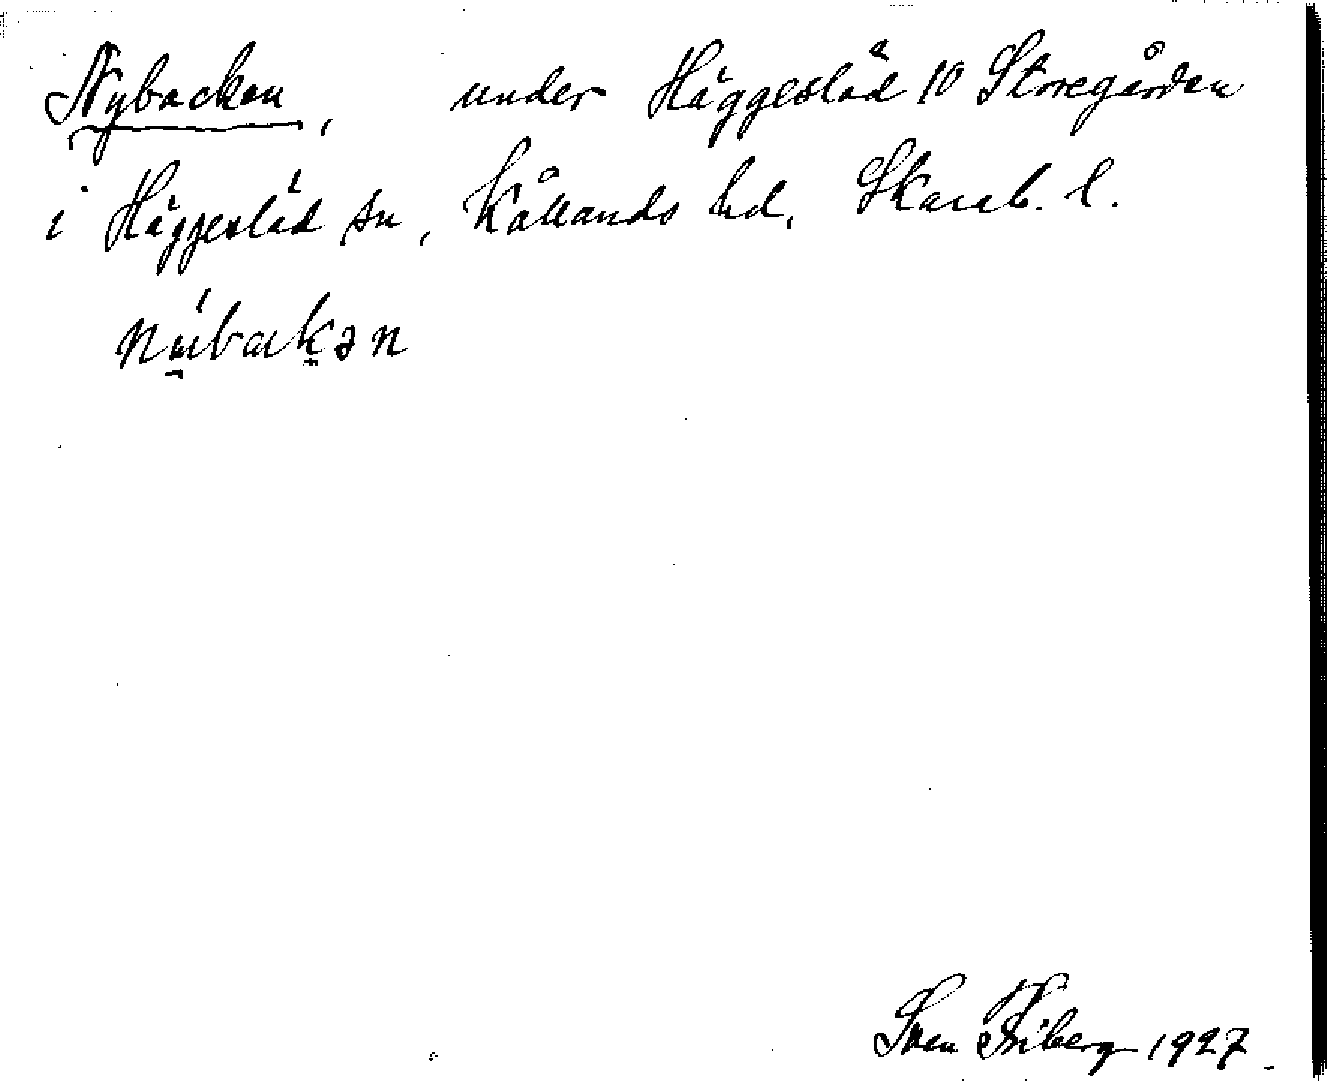 Nybacken, under Häggesläd 10 Storegården
i Häggesläd sn, Kållands hd, Skarab. l.
Sven Friberg 1927.